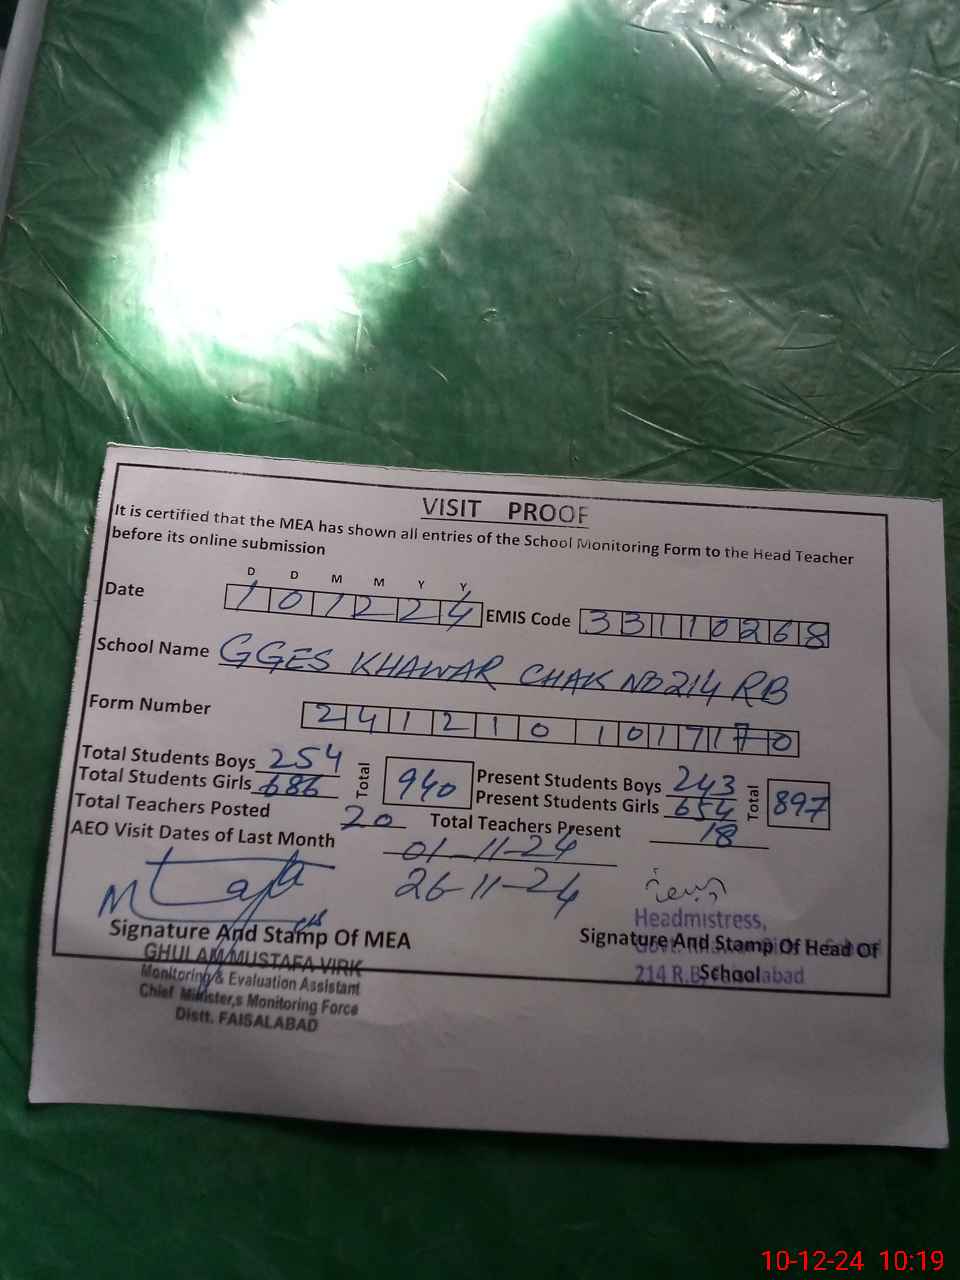 VISIT PROOF
It is certified that the MEA has shown all entries of the School Monitoring Form to the Head Teacher
before its online submission
D D M M Y Y
Date 1 0 1 2 2 4 EMIS Code 3 3 1 1 0 2 6 8
School Name GGES KHAWAR CHAK NO 214 RB
Form Number 2 4 1 2 1 0 1 0 1 7 1 7 0
Total Students Boys 254 Total 940 Present Students Boys 243 Total 897
Total Students Girls 686 Present Students Girls 654
Total Teachers Posted 20 Total Teachers Present 18
AEO Visit Dates of Last Month 01-11-24
26-11-24
Headmistress,
Signature And Stamp Of MEA Signature And Stamp Of Head Of
School
214 R.B
GHULAM MUSTAFA VIRK
Monitoring & Evaluation Assistant
Chief Minister,s Monitoring Force
Distt. FAISALABAD
10-12-24 10:19